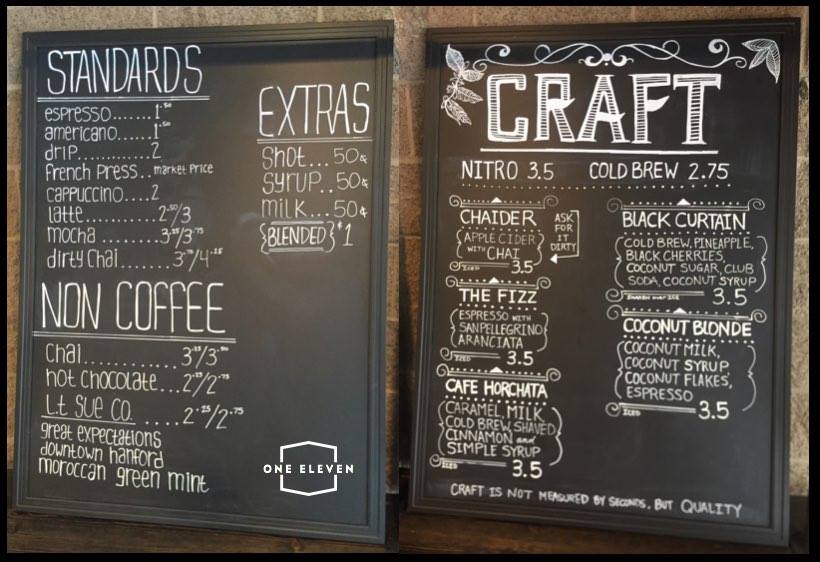 STANDARDS
espresso.......1.50
americano......1.50
drip............2
French Press..market Price
cappuccino....2
latte...........2.50/3
mocha..........3.25/3.75
dirty chai.......3.75/4.25
NON COFFEE
chai............3.25/3.50
hot chocolate...2.25/2.75
L.t Sue Co. .....2.25/2.75
great expectations
downtown hanford
moroccan green mint
EXTRAS
Shot...50¢
Syrup..50¢
milk...50¢
{BLENDED} $1
ONE ELEVEN
CRAFT
NITRO 3.5 COLD BREW 2.75
CHAIDER
APPLE CIDER
WITH CHAI
ICED 3.5
ASK
FOR
IT
DIRTY
THE FIZZ
ESPRESSO WITH
SANPELLEGRINO
ARANCIATA
ICED 3.5
CAFE HORCHATA
CARAMEL, MILK,
COLD BREW, SHAVED
CINNAMON and
SIMPLE SYRUP
ICED 3.5
BLACK CURTAIN
COLD BREW, PINEAPPLE,
BLACK CHERRIES,
COCONUT SUGAR, CLUB
SODA, COCONUT SYRUP
SHAKEN OVER ICE 3.5
COCONUT BLONDE
COCONUT MILK,
COCONUT SYRUP
COCONUT FLAKES,
ESPRESSO
ICED 3.5
CRAFT IS NOT MEASURED BY SECONDS, BUT QUALITY